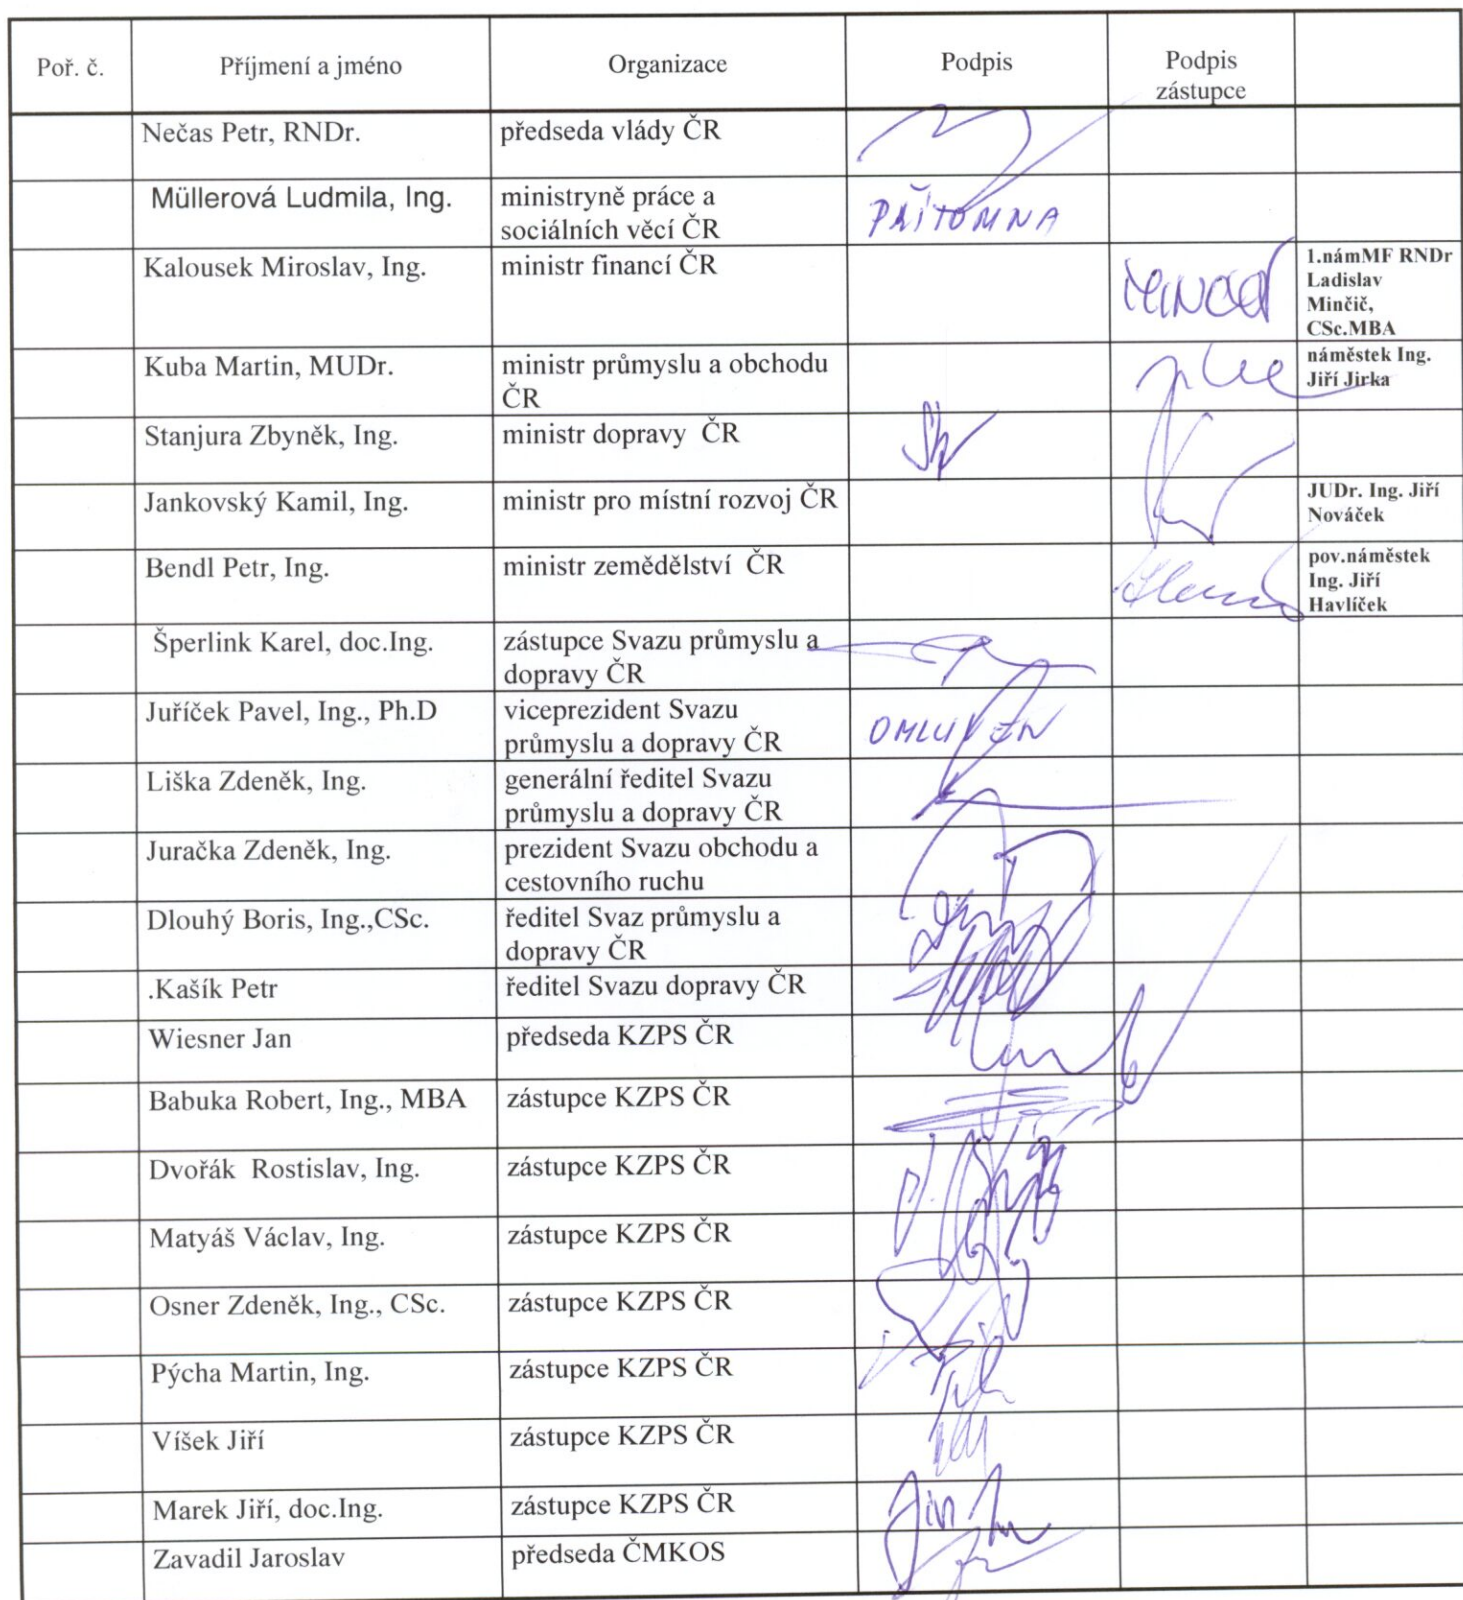 Poř. č. Příjmení a jméno Organizace Podpis Podpis
zástupce
Nečas Petr, RNDr. předseda vlády ČR
Müllerová Ludmila, Ing. ministryně práce a
sociálních věcí ČR PŘÍTOMNA
Kalousek Miroslav, Ing. ministr financí ČR 1.námMF RNDr
Ladislav
Minčič,
CSc.MBA
Kuba Martin, MUDr. ministr průmyslu a obchodu
ČR náměstek Ing.
Jiří Jirka
Stanjura Zbyněk, Ing. ministr dopravy ČR
Jankovský Kamil, Ing. ministr pro místní rozvoj ČR JUDr. Ing. Jiří
Nováček
Bendl Petr, Ing. ministr zemědělství ČR pov.náměstek
Ing. Jiří
Havlíček
Šperlink Karel, doc.Ing. zástupce Svazu průmyslu a
dopravy ČR
Juříček Pavel, Ing., Ph.D viceprezident Svazu
průmyslu a dopravy ČR OMLUVEN
Liška Zdeněk, Ing. generální ředitel Svazu
průmyslu a dopravy ČR
Juračka Zdeněk, Ing. prezident Svazu obchodu a
cestovního ruchu
Dlouhý Boris, Ing.,CSc. ředitel Svaz průmyslu a
dopravy ČR
.Kašík Petr ředitel Svazu dopravy ČR
Wiesner Jan předseda KZPS ČR
Babuka Robert, Ing., MBA zástupce KZPS ČR
Dvořák Rostislav, Ing. zástupce KZPS ČR
Matyáš Václav, Ing. zástupce KZPS ČR
Osner Zdeněk, Ing., CSc. zástupce KZPS ČR
Pýcha Martin, Ing. zástupce KZPS ČR
Víšek Jiří zástupce KZPS ČR
Marek Jiří, doc.Ing. zástupce KZPS ČR
Zavadil Jaroslav předseda ČMKOS